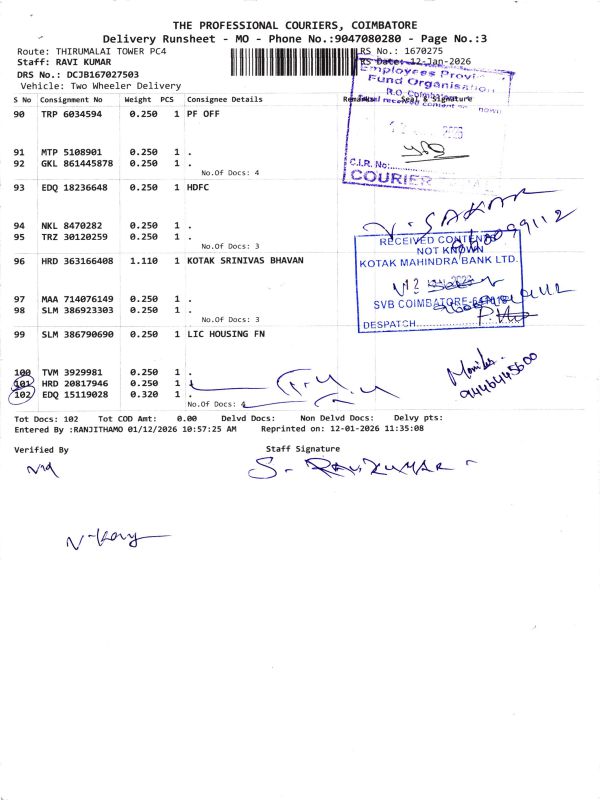 THE PROFESSIONAL COURIERS, COIMBATORE
Delivery Runsheet - MO - Phone No.:9047080280 - Page No.:3
Route: THIRUMALAI TOWER PC4
RS No.: 1670275
Staff: RAVI KUMAR
RS Date: 12-Jan-2026
DRS No.: DCJB167027503
Vehicle: Two Wheeler Delivery
S No Consignment No Weight PCS Consignee Details Remarks Seal & Signature
90 TRP 6034594 0.250 1 PF OFF
91 MTP 5108901 0.250 1 .
92 GKL 861445878 0.250 1 .
No.Of Docs: 4
93 EDQ 18236648 0.250 1 HDFC
94 NKL 8470282 0.250 1 .
95 TRZ 30120259 0.250 1 .
No.Of Docs: 3
96 HRD 363166408 1.110 1 KOTAK SRINIVAS BHAVAN
97 MAA 714076149 0.250 1 .
98 SLM 386923303 0.250 1 .
No.Of Docs: 3
99 SLM 386790690 0.250 1 LIC HOUSING FN
100 TVM 3929981 0.250 1 .
101 HRD 20817946 0.250 1 .
102 EDQ 15119028 0.320 1 .
No.Of Docs: 4
Employees Provi
Fund Organisation
R.O. Coimbatore
C.I.R. No:
COURIER
V. SAKAR
RECEIVED CONTENTS
NOT KNOWN
KOTAK MAHINDRA BANK LTD.
SVB COIMBATORE
DESPATCH
9446445600
Tot Docs: 102 Tot COD Amt: 0.00 Delvd Docs: Non Delvd Docs: Delvy pts:
Entered By :RANJITHAMO 01/12/2026 10:57:25 AM Reprinted on: 12-01-2026 11:35:08
Verified By Staff Signature
S. RAVIKUMAR